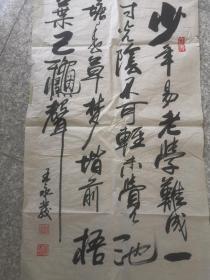 少年易老學難成一
寸光陰不可輕未覺池
塘春草夢堦前梧
葉已龝聲
王永